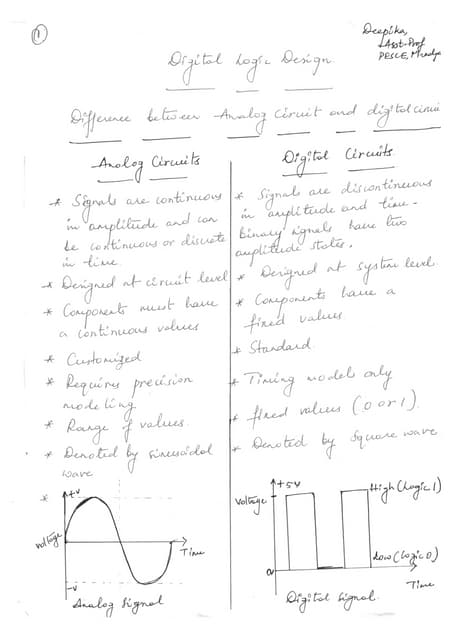 1
Deepika,
Asst. Prof
PESCE, Mandya
Digital Logic Design.
Difference between Analog Circuit and digital circui
Analog Circuits
* Signals are continuous
in amplitude and can
be continuous or discrete
in time.
* Designed at circuit level
* Components must have
a continuous values
* Customized
* Requires precision
modeling
* Range of values.
* Denoted by sinusoidal
wave
*
+V
Voltage
Time
-V
Analog Signal
Digital Circuits.
* Signals are discontinuous
in amplitude and time.
Binary signals have two
amplitude states.
* Designed at system level.
* Components have a
fixed values
* Standard.
* Timing model only
* fixed values (0 or 1).
* Denoted by Square wave
+5V
Voltage
High (Logic 1)
Low (Logic 0)
0V
Time
Digital Signal.